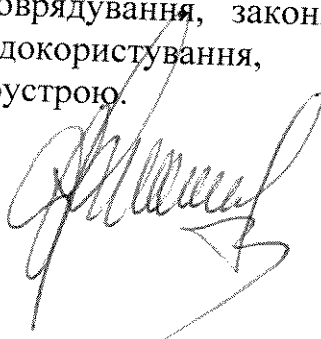 оврядування, закон
докористування,
оустрою.